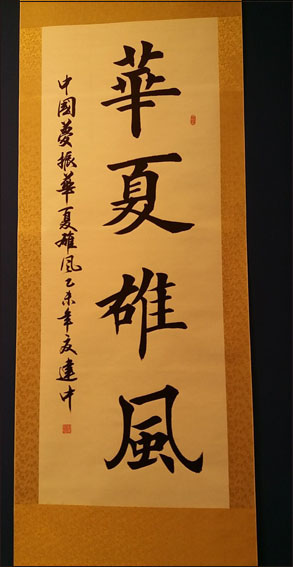 華夏雄風
中國夢振華夏雄風乙未年友建中